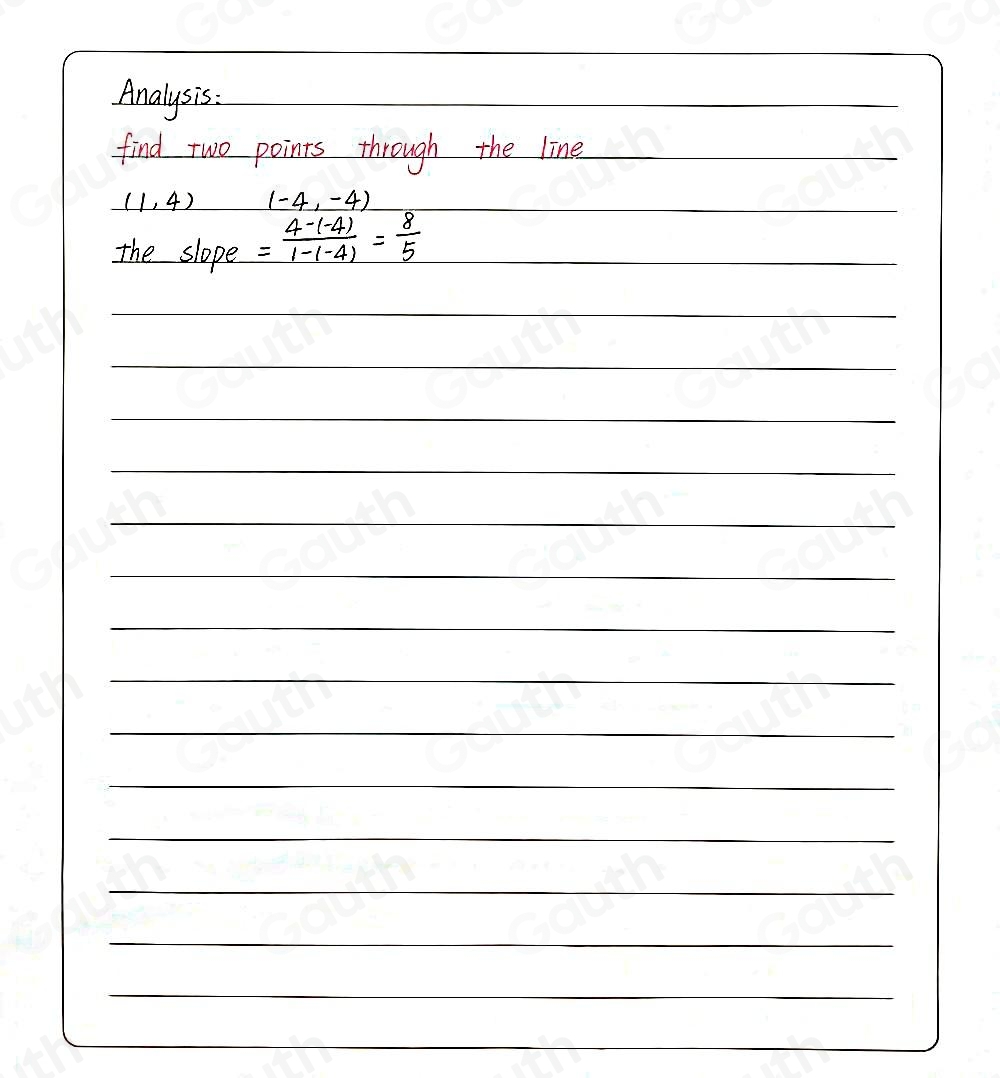 Analysis:
find two points through the line
(1, 4) (-4, -4)
the slope = \frac{4-(-4)}{1-(-4)} = \frac{8}{5}
Gauth